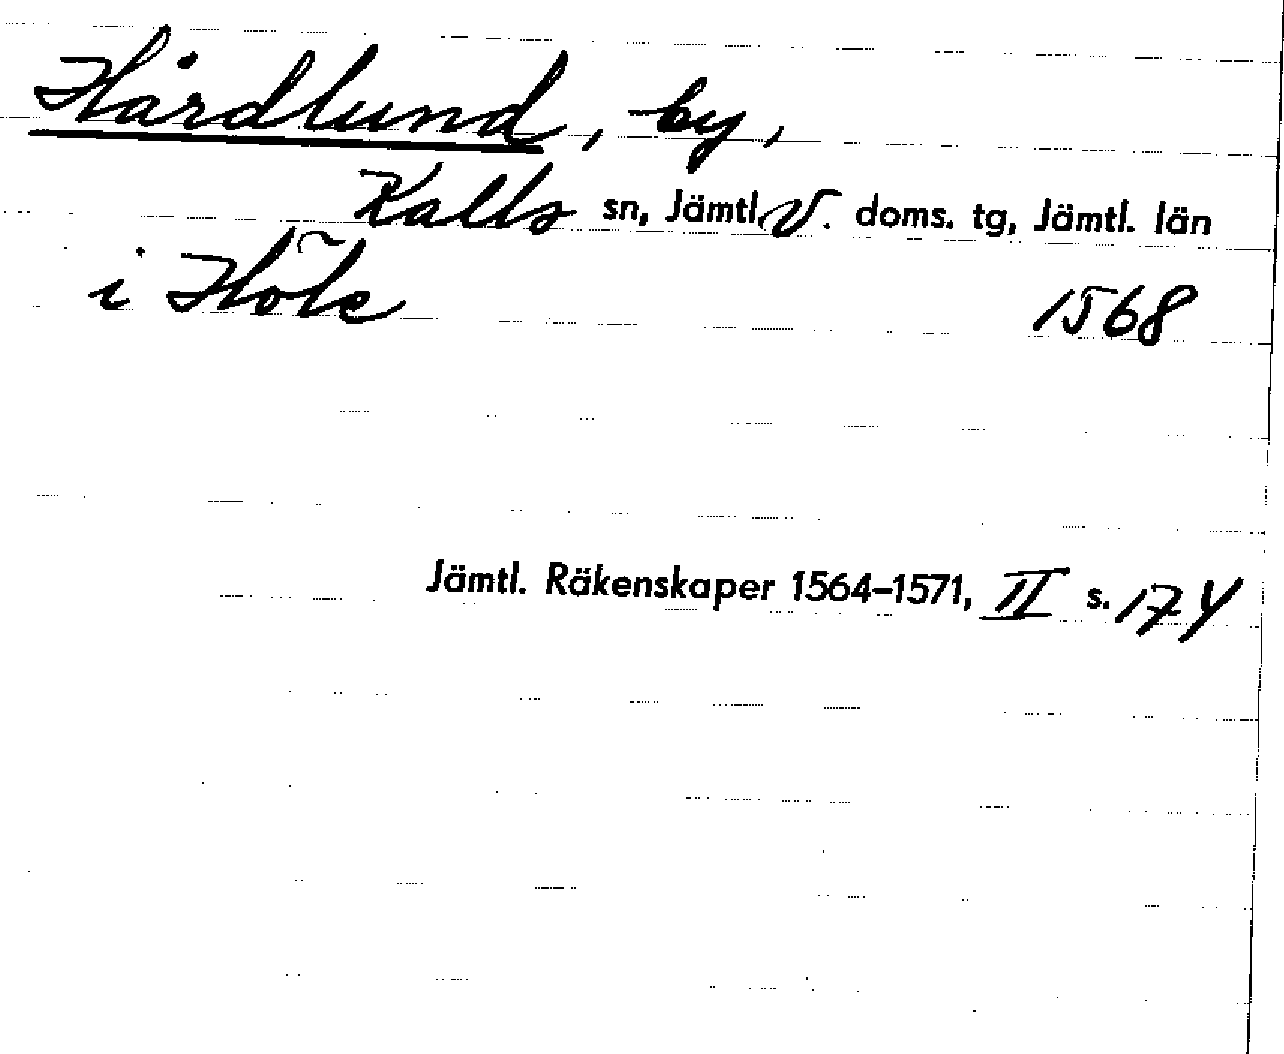 Hårdlund, by,
Kalls sn, Jämtl. V. doms. tg, Jämtl. län
i Hõle 1568
Jämtl. Räkenskaper 1564–1571, II s. 174